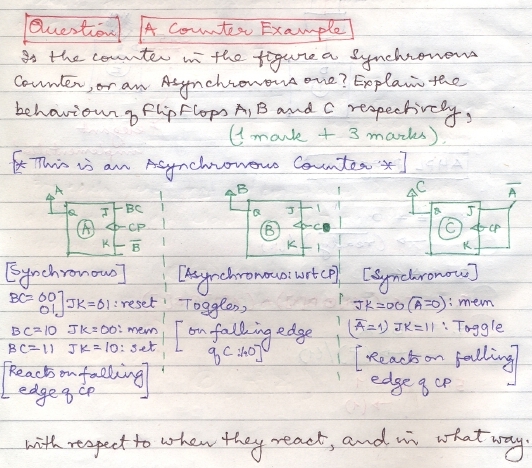 Question A Counter Example
Is the counter in the figure a Synchronous
Counter, or an Asynchronous one? Explain the
behaviour of FlipFlops A, B and C respectively,
(1 mark + 3 marks).
[* This is an Asynchronous Counter *]
A B C Ā
Q J BC Q J 1 Q J
A CP B C C CP
K B̄ K 1 K
[Synchronous] [Asynchronous: wrt CP] [Synchronous]
BC= 00 01 ] JK=01: reset Toggles, JK=00 (Ā=0): mem
BC=10 JK=00: mem [on falling edge (Ā=1) JK=11: Toggle
BC=11 JK=10: set of C: 1→0] [Reacts on falling
[Reacts on falling edge of CP]
edge of CP]
with respect to when they react, and in what way.